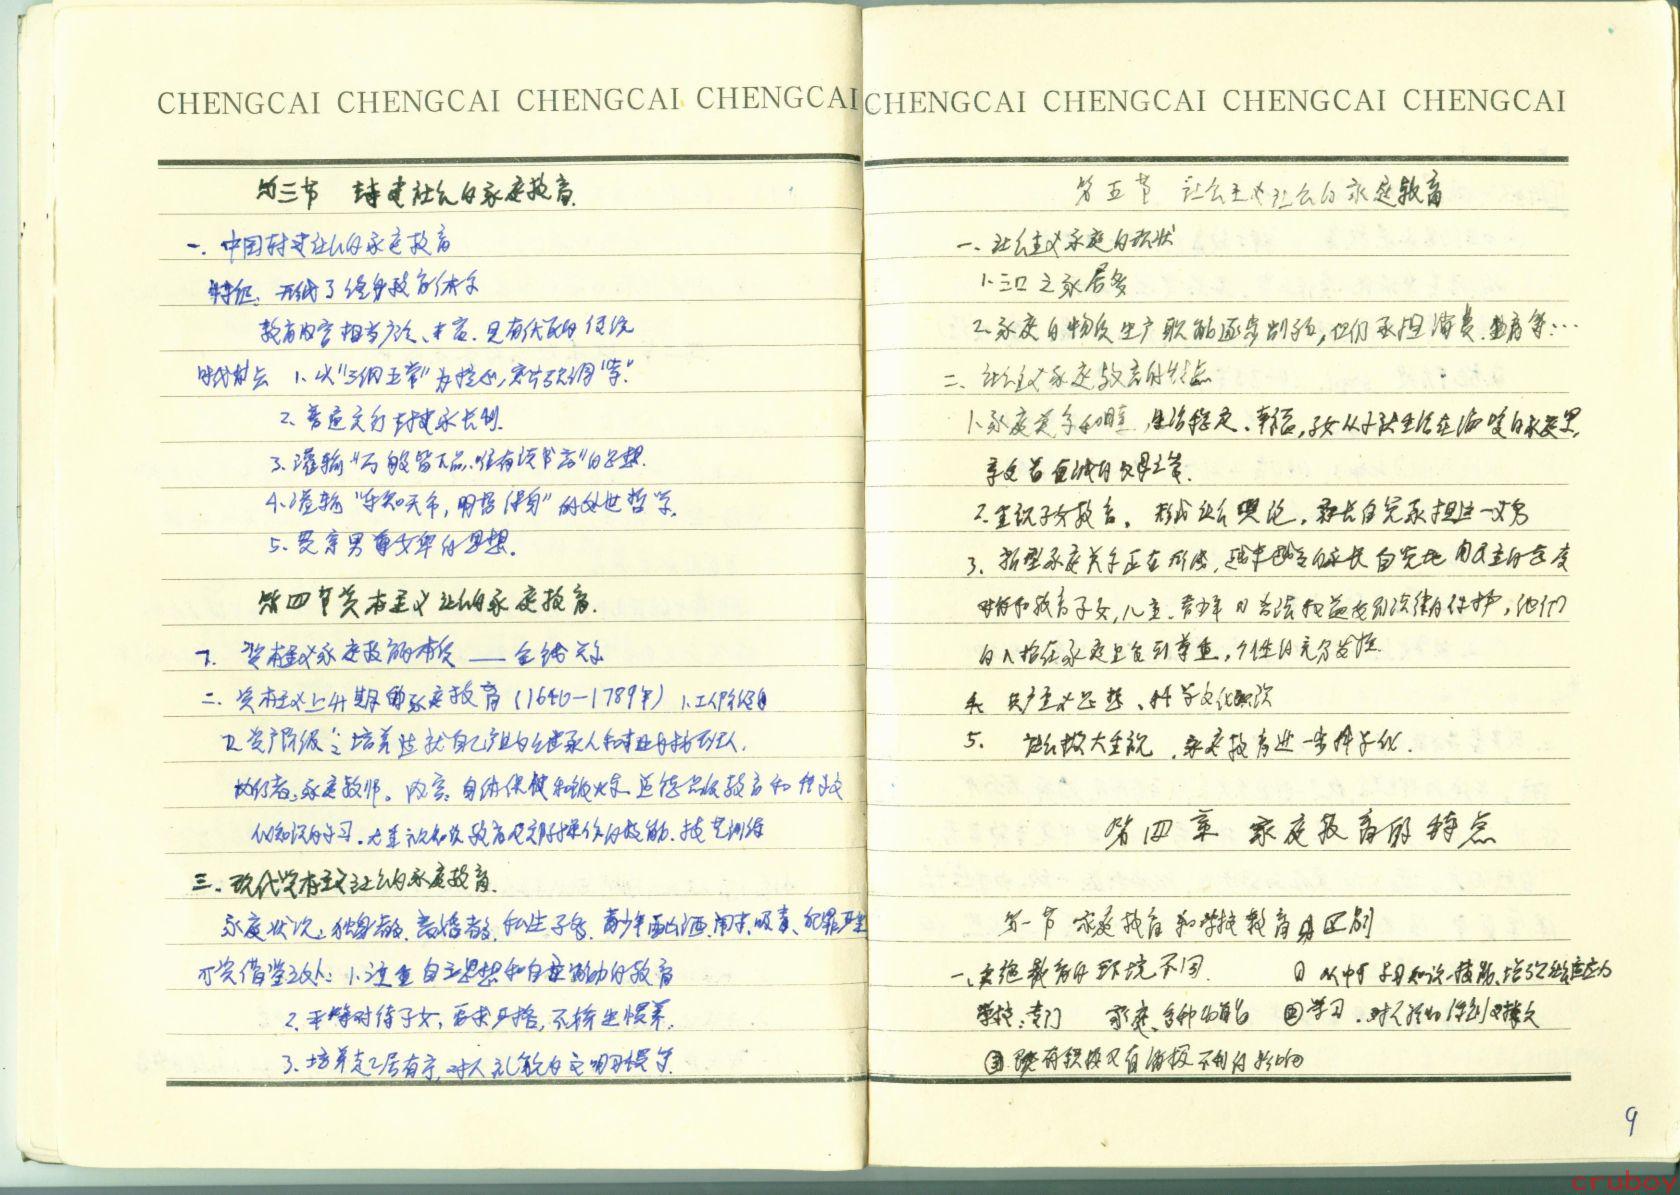 CHENGCAI CHENGCAI CHENGCAI CHENGCAI
第三节 封建社会的家庭教育.
一. 中国封建社会的家庭教育
特征: 形成了终身教育体系
教育内容相当广泛、丰富. 具有优良的传统
时代特点 1. 以"三纲五常"为核心,
2. 普遍实行封建家长制.
3. 灌输"万般皆下品.唯有读书高"的思想.
4. 灌输"乐知天命, 明哲保身"的处世哲学.
5. 贯穿男尊女卑的思想.
第四节 资本主义社会的家庭教育.
资本主义家庭教育的本质 —— 金钱关系
二. 资本主义上升期的家庭教育 (1640—1789年)
资产阶级: 培养造就自己产业的继承人和事业的接班人.
执行者: 家庭教师. 内容: 身体保健和锻炼. 道德品质教育和科学文
化知识的学习. 技艺训练
三. 现代资本主义社会的家庭教育.
家庭状况: 独身者多. 离婚者多. 私生子多. 青少年酗酒. 闹事. 吸毒、犯罪严重
可资借鉴之处: 1. 注重自立思想和自立能力的教育
2. 平等对待子女, 要求严格, 不娇生惯养.
3. 培养起居有序, 对人礼貌的文明习惯等.
CHENGCAI CHENGCAI CHENGCAI CHENGCAI
第五节 社会主义社会的家庭教育
一. 社会主义家庭的现状
1. 三口之家居多
2. 家庭的物质生产职能逐步削弱, 但仍承担消费. 生育等…
二. 社会主义家庭教育的特点
1. 家庭关系和睦, 生活稳定、幸福, 子女从小就生活在温暖的家庭里,
享受着至诚的父母之爱.
2. 重视子女教育, 形成社会舆论, 家长自觉承担这一义务
3. 新型家庭关系正在形成, 越来越多的家长自觉地用民主的态度
对待和教育子女, 儿童. 青少年的合法权益受到法律的保护, 他们
的人格在家庭里受到尊重, 个性的充分发挥.
4. 共产主义思想、科学文化知识
5. 社会极大重视, 家庭教育进一步科学化.
第四章 家庭教育的特点
第一节 家庭教育和学校教育的区别
一. 实施教育的环境不同.
学校: 专门 家庭: 多种功能
③ 既有积极又有消极不利的影响
9
cruboy